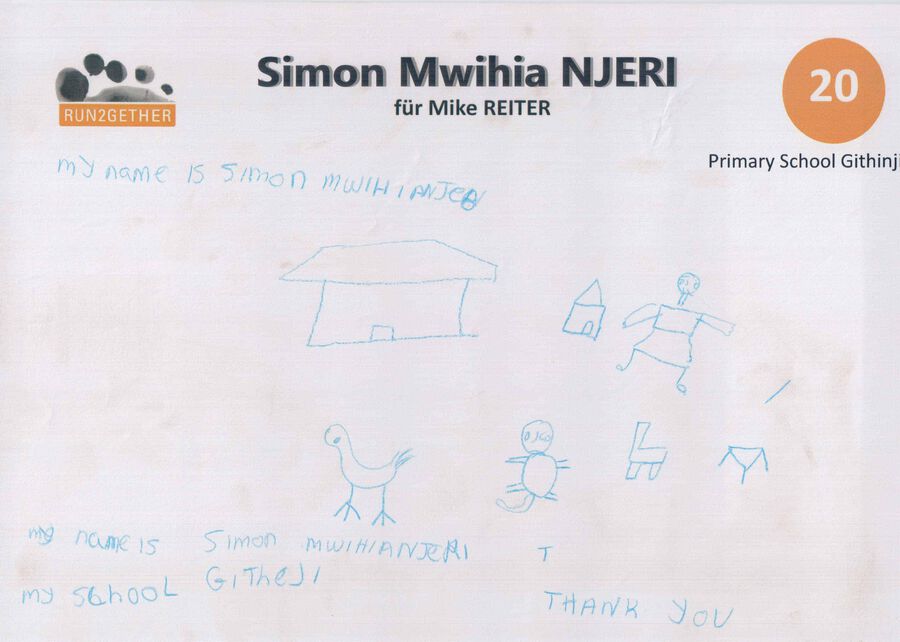 Simon Mwihia NJERI
für Mike REITER
RUN2GETHER
20
Primary School Githinji
my name is Simon MWIHIANJER
my name is Simon MWIHIANJERI T
my School GiTheJI
THANK YOU